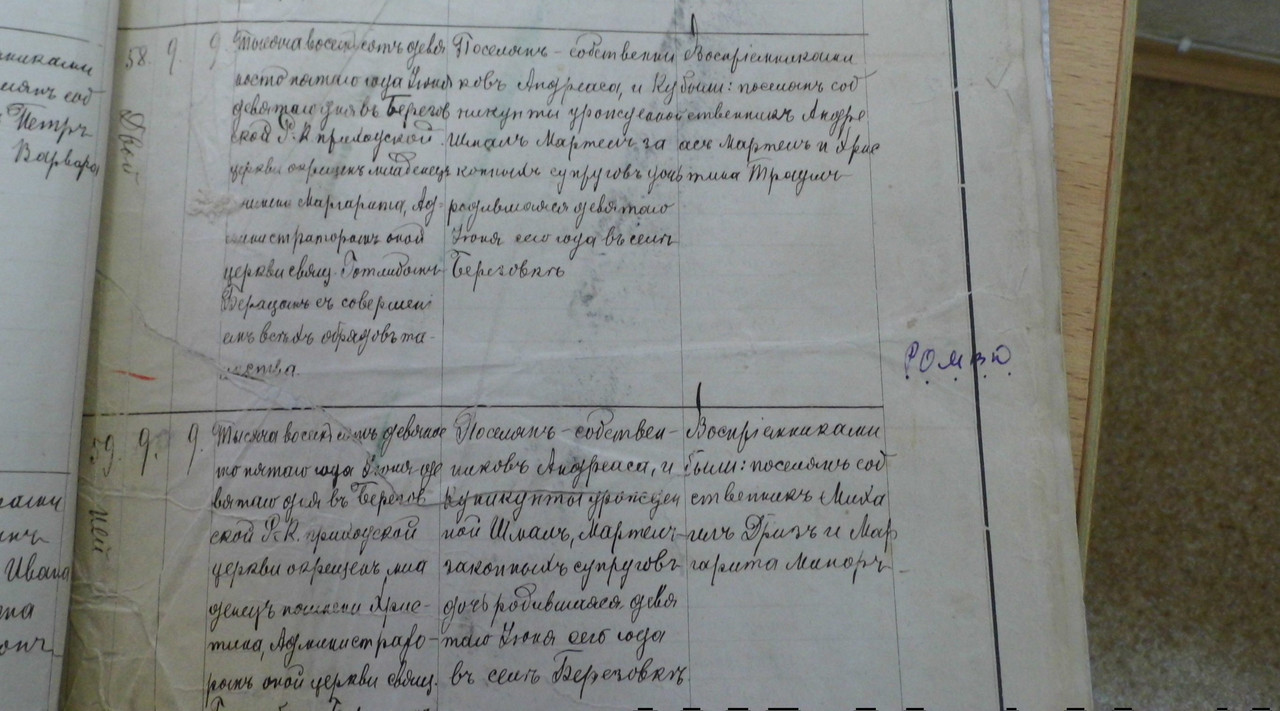 никами
лянъ соб
Петръ
Варвара
58. 9. 9.
Двой
Тысяча восемьсотъ девя
носто пятаго года Іюня
девятаго дня въ Березов
ской Р. К. приходской
церкви окрещенъ младенецъ
имени Маргарита, Ад-
министраторомъ оной
церкви свящ. Готлибомъ
съ совершен
емъ всѣхъ обрядовъ та-
инства.
Поселянъ - собственни
ковъ Андреаса, и Ку
никунты урожденной
Шмалъ Мартелъ за
конныхъ супруговъ дочь
родившаяся девятаго
Іюня сего года въ селѣ
Березовкѣ
Воспріемниками
были: поселянъ соб
ственникъ Андре
асъ Мартелъ и Хрис
тина
РОМВЮ
59. 9. 9.
ней
Тысяча восемьсотъ девянос
то пятаго года Іюня де
вятаго дня въ Березов
ской Р. К. приходской
церкви окрещенъ мла
денецъ по имени Хрис-
тина, Администрато-
ромъ оной церкви свящ.
Поселянъ - собствен-
никовъ Андреаса, и
Куникунты урожден
ной Шмалъ, Мартелъ
законныхъ супруговъ
дочь родившаяся девя
таго Іюня сего года
въ селѣ Березовкѣ
Воспріемниками
были: поселянъ соб
ственникъ Миха
илъ Дризъ и Мар
гарита Миноръ
Ивана